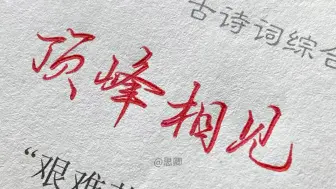 古诗词综合
顶峰相见
"艰难